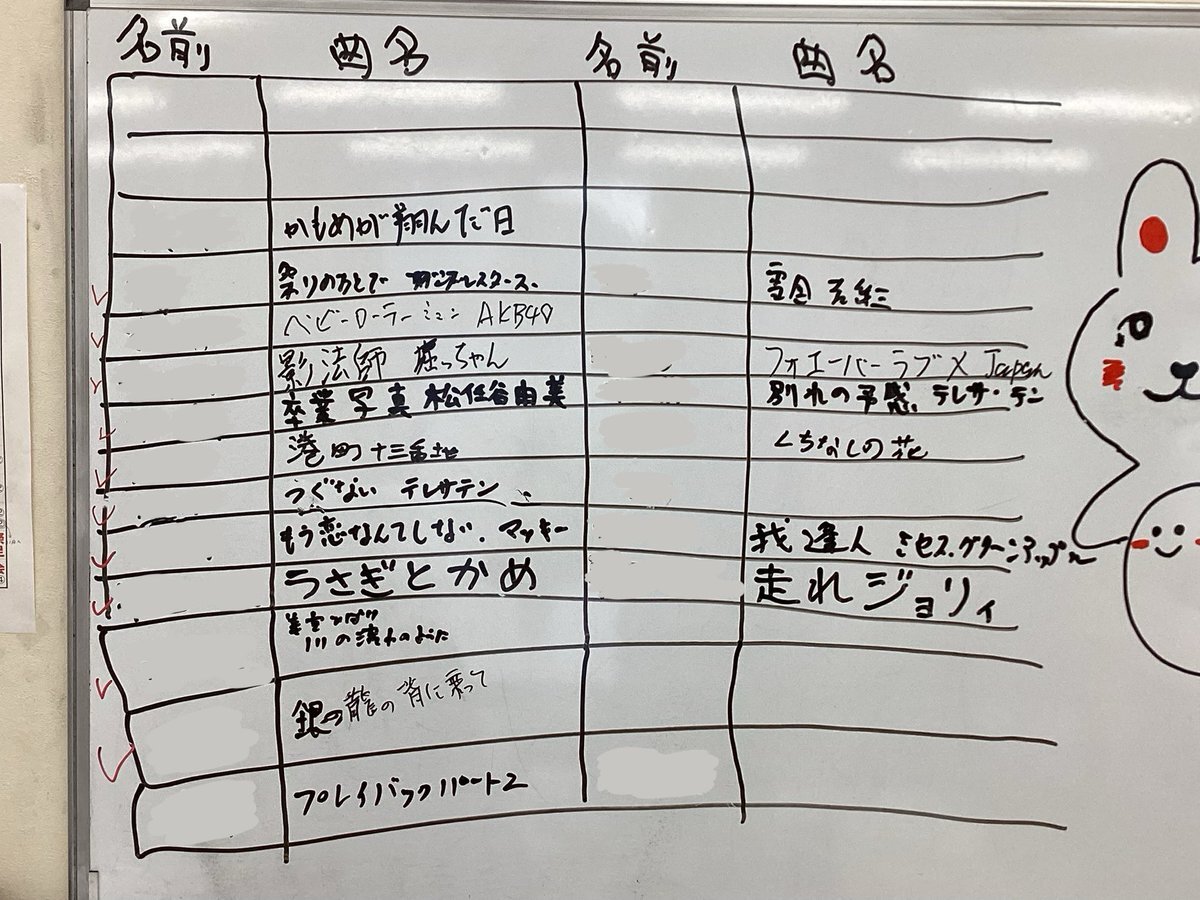 名前 曲名 名前 曲名
かもめが翔んだ日
祭りのあとで
ベビーローラーミュン AKB48
影法師 堀っちゃん
フォエーバーラブ X Japan
卒業写真 松任谷由美
別れの予感 テレサ・テン
港町十三番地
くちなしの花
つぐない テレサテン
もう恋なんてしない. マッキー
我逢人 ミセス.グリーンアップル
うさぎとかめ
走れジョリィ
美空ひばり
川の流れのように
銀の龍の背に乗って
プレイバックパート2